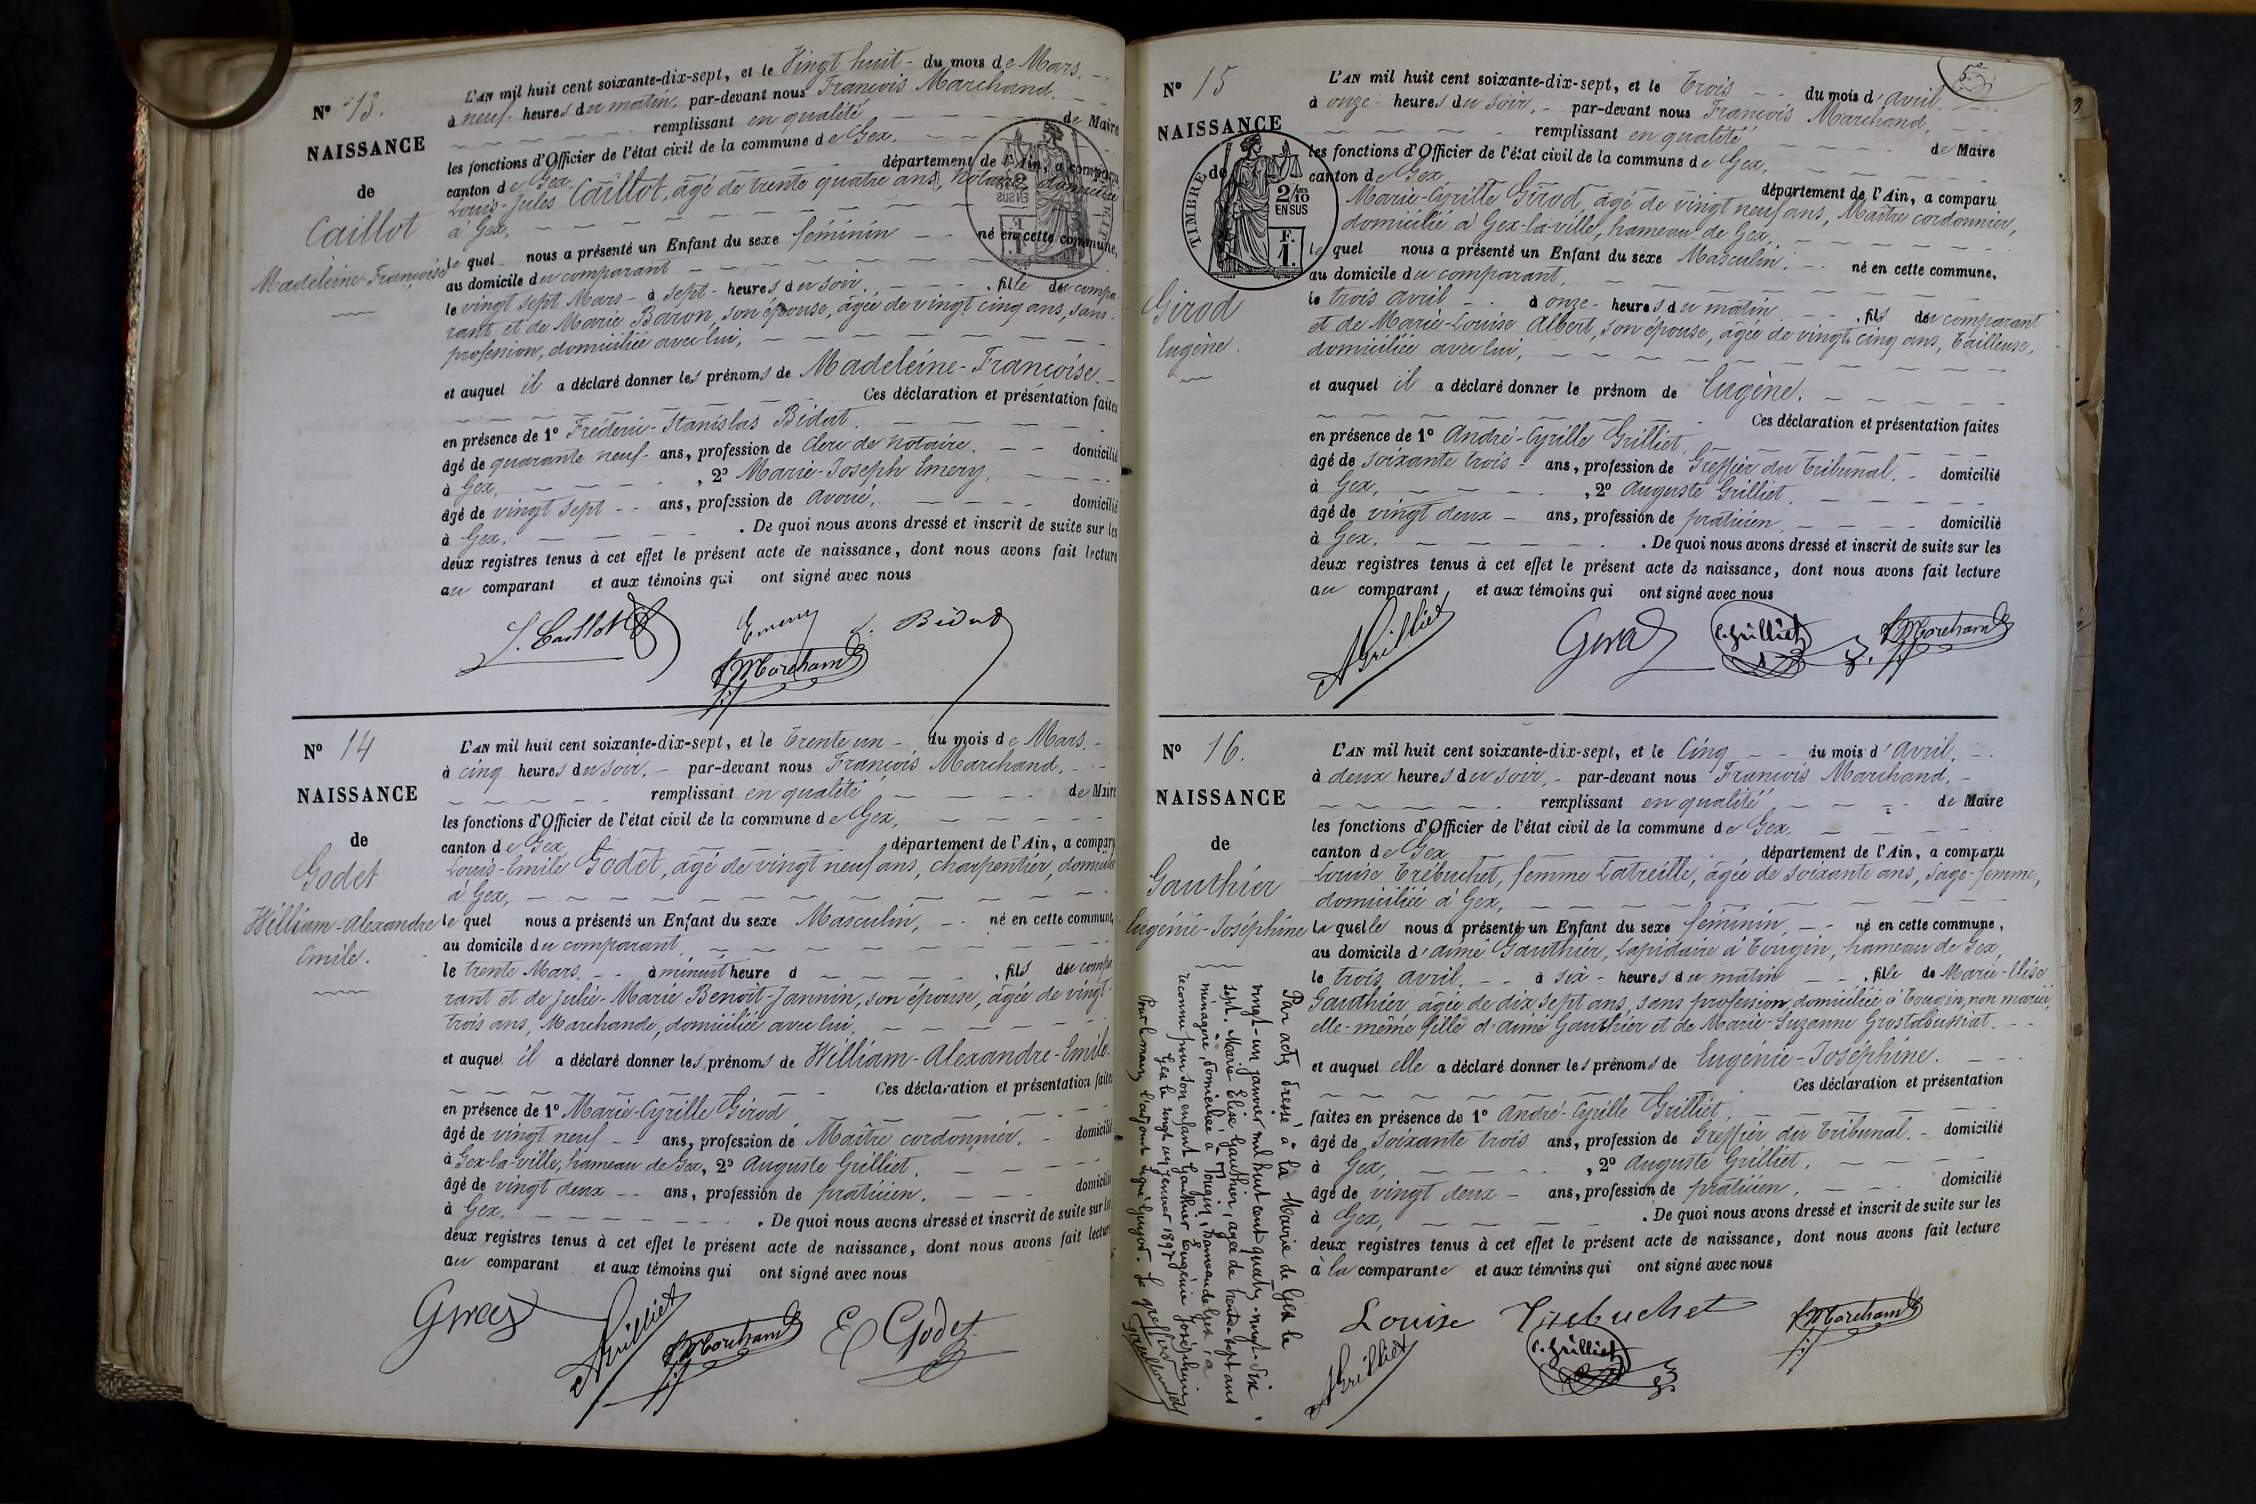 N° 13.
NAISSANCE
de
Caillot
Madeleine-Françoise
L'AN mil huit cent soixante-dix-sept, et le Vingt huit - du mois de Mars.
à neuf heures du matin, par-devant nous François Marchand,
remplissant en qualité de Maire
les fonctions d'Officier de l'état civil de la commune de Gex,
canton de Gex, département de l'Ain, a comparu
Louis-Jules Caillot, âgé de trente quatre ans, Notaire, domicilié
à Gex,
le quel nous a présenté un Enfant du sexe féminin né en cette commune,
au domicile du comparant
le vingt sept Mars - à sept - heures du soir, fille du compa-
rant et de Marie Baron, son épouse, âgée de vingt cinq ans, sans
profession, domiciliée avec lui,
et auquel il a déclaré donner les prénoms de Madeleine-Françoise.
Ces déclaration et présentation faites
en présence de 1° Frédéric-Stanislas Bidat.
âgé de quarante neuf - ans, profession de Clerc de Notaire. domicilié
à Gex, , 2° Marie-Joseph Emery,
âgé de vingt sept -- ans, profession de avoué, domicilié
à Gex, . De quoi nous avons dressé et inscrit de suite sur les
deux registres tenus à cet effet le présent acte de naissance, dont nous avons fait lecture
au comparant et aux témoins qui ont signé avec nous
J. Caillot Emery Bidat
Marchand
N° 14
NAISSANCE
de
Godet
William-Alexandre
Emile.
L'AN mil huit cent soixante-dix-sept, et le Trente un - du mois de Mars.
à cinq heures du soir, - par-devant nous François Marchand,
remplissant en qualité de Maire
les fonctions d'Officier de l'état civil de la commune de Gex,
canton de Gex, département de l'Ain, a comparu
Louis-Emile Godet, âgé de vingt neuf ans, charpentier, domicilié
à Gex,
le quel nous a présenté un Enfant du sexe Masculin, né en cette commune,
au domicile du comparant
le trente Mars, à minuit heure d , fils du compa
rant et de Julie-Marie Benoît-Jannin, son épouse, âgée de vingt-
trois ans, Marchande, domiciliée avec lui,
et auquel il a déclaré donner les prénoms de William-Alexandre-Emile.
Ces déclaration et présentation faites
en présence de 1° Marie-Cyrille Girod
âgé de vingt neuf ans, profession de Maître cordonnier, domicilié
à Gex-la-ville, hameau de Gex, 2° Auguste Grilliet,
âgé de vingt deux -- ans, profession de praticien. domicilié
à Gex, . De quoi nous avons dressé et inscrit de suite sur les
deux registres tenus à cet effet le présent acte de naissance, dont nous avons fait lecture
au comparant et aux témoins qui ont signé avec nous
Girod AGrilliet Marchand E Godet
N° 15
NAISSANCE
de
Girod
Eugène.
TIMBRE
2/10
EN SUS
F.
1.
L'AN mil huit cent soixante-dix-sept, et le Trois du mois d'avril,
à onze - heures du soir, - par-devant nous François Marchand,
remplissant en qualité de Maire
les fonctions d'Officier de l'état civil de la commune de Gex,
canton de Gex département de l'Ain, a comparu
Marie-Cyrille Girod, âgé de vingt neuf ans, Maître cordonnier,
domicilié à Gex-la-ville, hameau de Gex,
le quel nous a présenté un Enfant du sexe Masculin, né en cette commune,
au domicile du comparant,
le trois avril à onze - heures du matin , fils du comparant
et de Marie-Louise Albert, son épouse, âgée de vingt cinq ans, Tailleuse,
domiciliée avec lui,
et auquel il a déclaré donner le prénom de Eugène.
Ces déclaration et présentation faites
en présence de 1° André-Cyrille Grilliet,
âgé de soixante trois - ans, profession de Greffier du Tribunal. - domicilié
à Gex, , 2° Auguste Grilliet,
âgé de vingt deux - ans, profession de praticien domicilié
à Gex. . De quoi nous avons dressé et inscrit de suite sur les
deux registres tenus à cet effet le présent acte de naissance, dont nous avons fait lecture
au comparant et aux témoins qui ont signé avec nous
AGrilliet Girod C. Grilliet Marchand
N° 16.
NAISSANCE
de
Gauthier
Eugénie-Joséphine
L'AN mil huit cent soixante-dix-sept, et le Cinq du mois d'avril.
à deux heures du soir, - par-devant nous François Marchand,
remplissant en qualité de Maire
les fonctions d'Officier de l'état civil de la commune de Gex,
canton de Gex département de l'Ain, a comparu
Louise Trébuchet, femme Latreille, âgée de soixante ans, Sage-femme,
domiciliée à Gex,
la quelle nous a présenté un Enfant du sexe féminin, né en cette commune,
au domicile d'aimé Gauthier, Lapidaire à Tougin, hameau de Gex,
le trois avril. à six - heures du matin , fille de Marie-Elise
Gauthier, âgée de dix sept ans, sans profession, domiciliée à Tougin, non mariée,
elle-même fille d'aimé Gauthier et de Marie-Suzanne Grostabussiat.
et auquel elle a déclaré donner les prénoms de Eugénie-Joséphine.
Ces déclaration et présentation
faites en présence de 1° André-Cyrille Grilliet.
âgé de soixante trois ans, profession de Greffier du Tribunal. - domicilié
à Gex, , 2° Auguste Grilliet,
âgé de vingt deux - ans, profession de praticien. domicilié
à Gex, . De quoi nous avons dressé et inscrit de suite sur les
deux registres tenus à cet effet le présent acte de naissance, dont nous avons fait lecture
à la comparante et aux témoins qui ont signé avec nous
Louise Trebuchet Marchand
AGrilliet C. Grilliet
Par acte dressé à la Mairie de Gex le
vingt-un janvier mil huit cent quatre-vingt-dix
sept, Marie Elise Gauthier, agée de trente-sept ans
ménagère, domiciliée à Tougin, hameau de Gex, a
reconnu pour son enfant Gauthier Eugénie Joséphine
Gex le vingt-un Janvier 1897
Pour le maire, l'adjoint signé Guyot. Le greffier